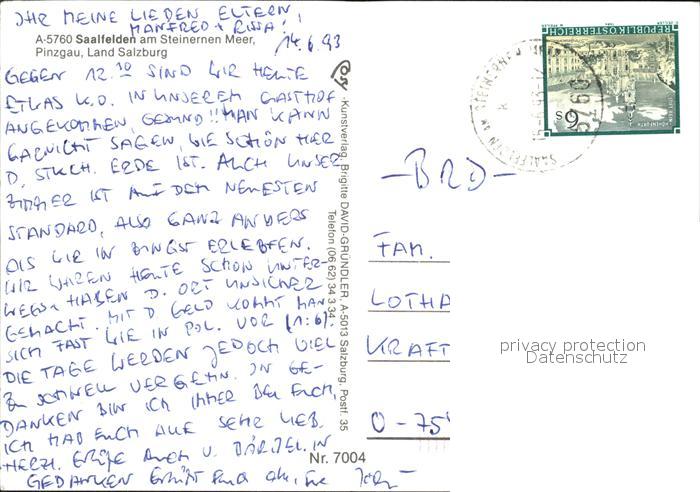 IHR MEINE LIEBEN ELTERN,
MANFRED + RISSA!
14.6.93
A-5760 Saalfelden am Steinernen Meer,
Pinzgau, Land Salzburg
GEGEN 12.10 SIND WIR HEUTE
ETWAS K.O. IN UNSEREM GASTHOF
ANGEKOMMEN, GESUND!! MAN KANN
GARNICHT SAGEN, WIE SCHÖN HIER
D. STÜCK. ERDE IST. AUCH UNSER
ZIMMER IST AUF DEM NEUESTEN
STANDARD, ALSO GANZ ANDERS
ALS WIR IN BINGST ERLEBTEN.
WIR WAREN HEUTE SCHON UNTER-
WEGS + HABEN D. ORT UNSICHER
GEMACHT. MIT D GELD KOMMT MAN
SICH FAST WIE IN POL. VOR (1:6).
DIE TAGE WERDEN JEDOCH VIEL
ZU SCHNELL VERGEHN. IN GE-
DANKEN BIN ICH IMMER BEI EUCH,
ICH HAB EUCH ALLE SEHR LIEB.
HERZL. GRÜßE AUCH V. BÄRBEL. IN
GEDANKEN GRÜßT EUCH
Kunstverlag, Brigitte DAVID-GRÜNDLER, A-5013 Salzburg, Postf. 35
Telefon (06 62) 34 3 34
Nr. 7004
REPUBLIK ÖSTERREICH
S 6
SAALFELDEN AM STEINERNEN
5760
-BRD-
FAM.
LOTHA
KRAFT
O-75
privacy protection
Datenschutz